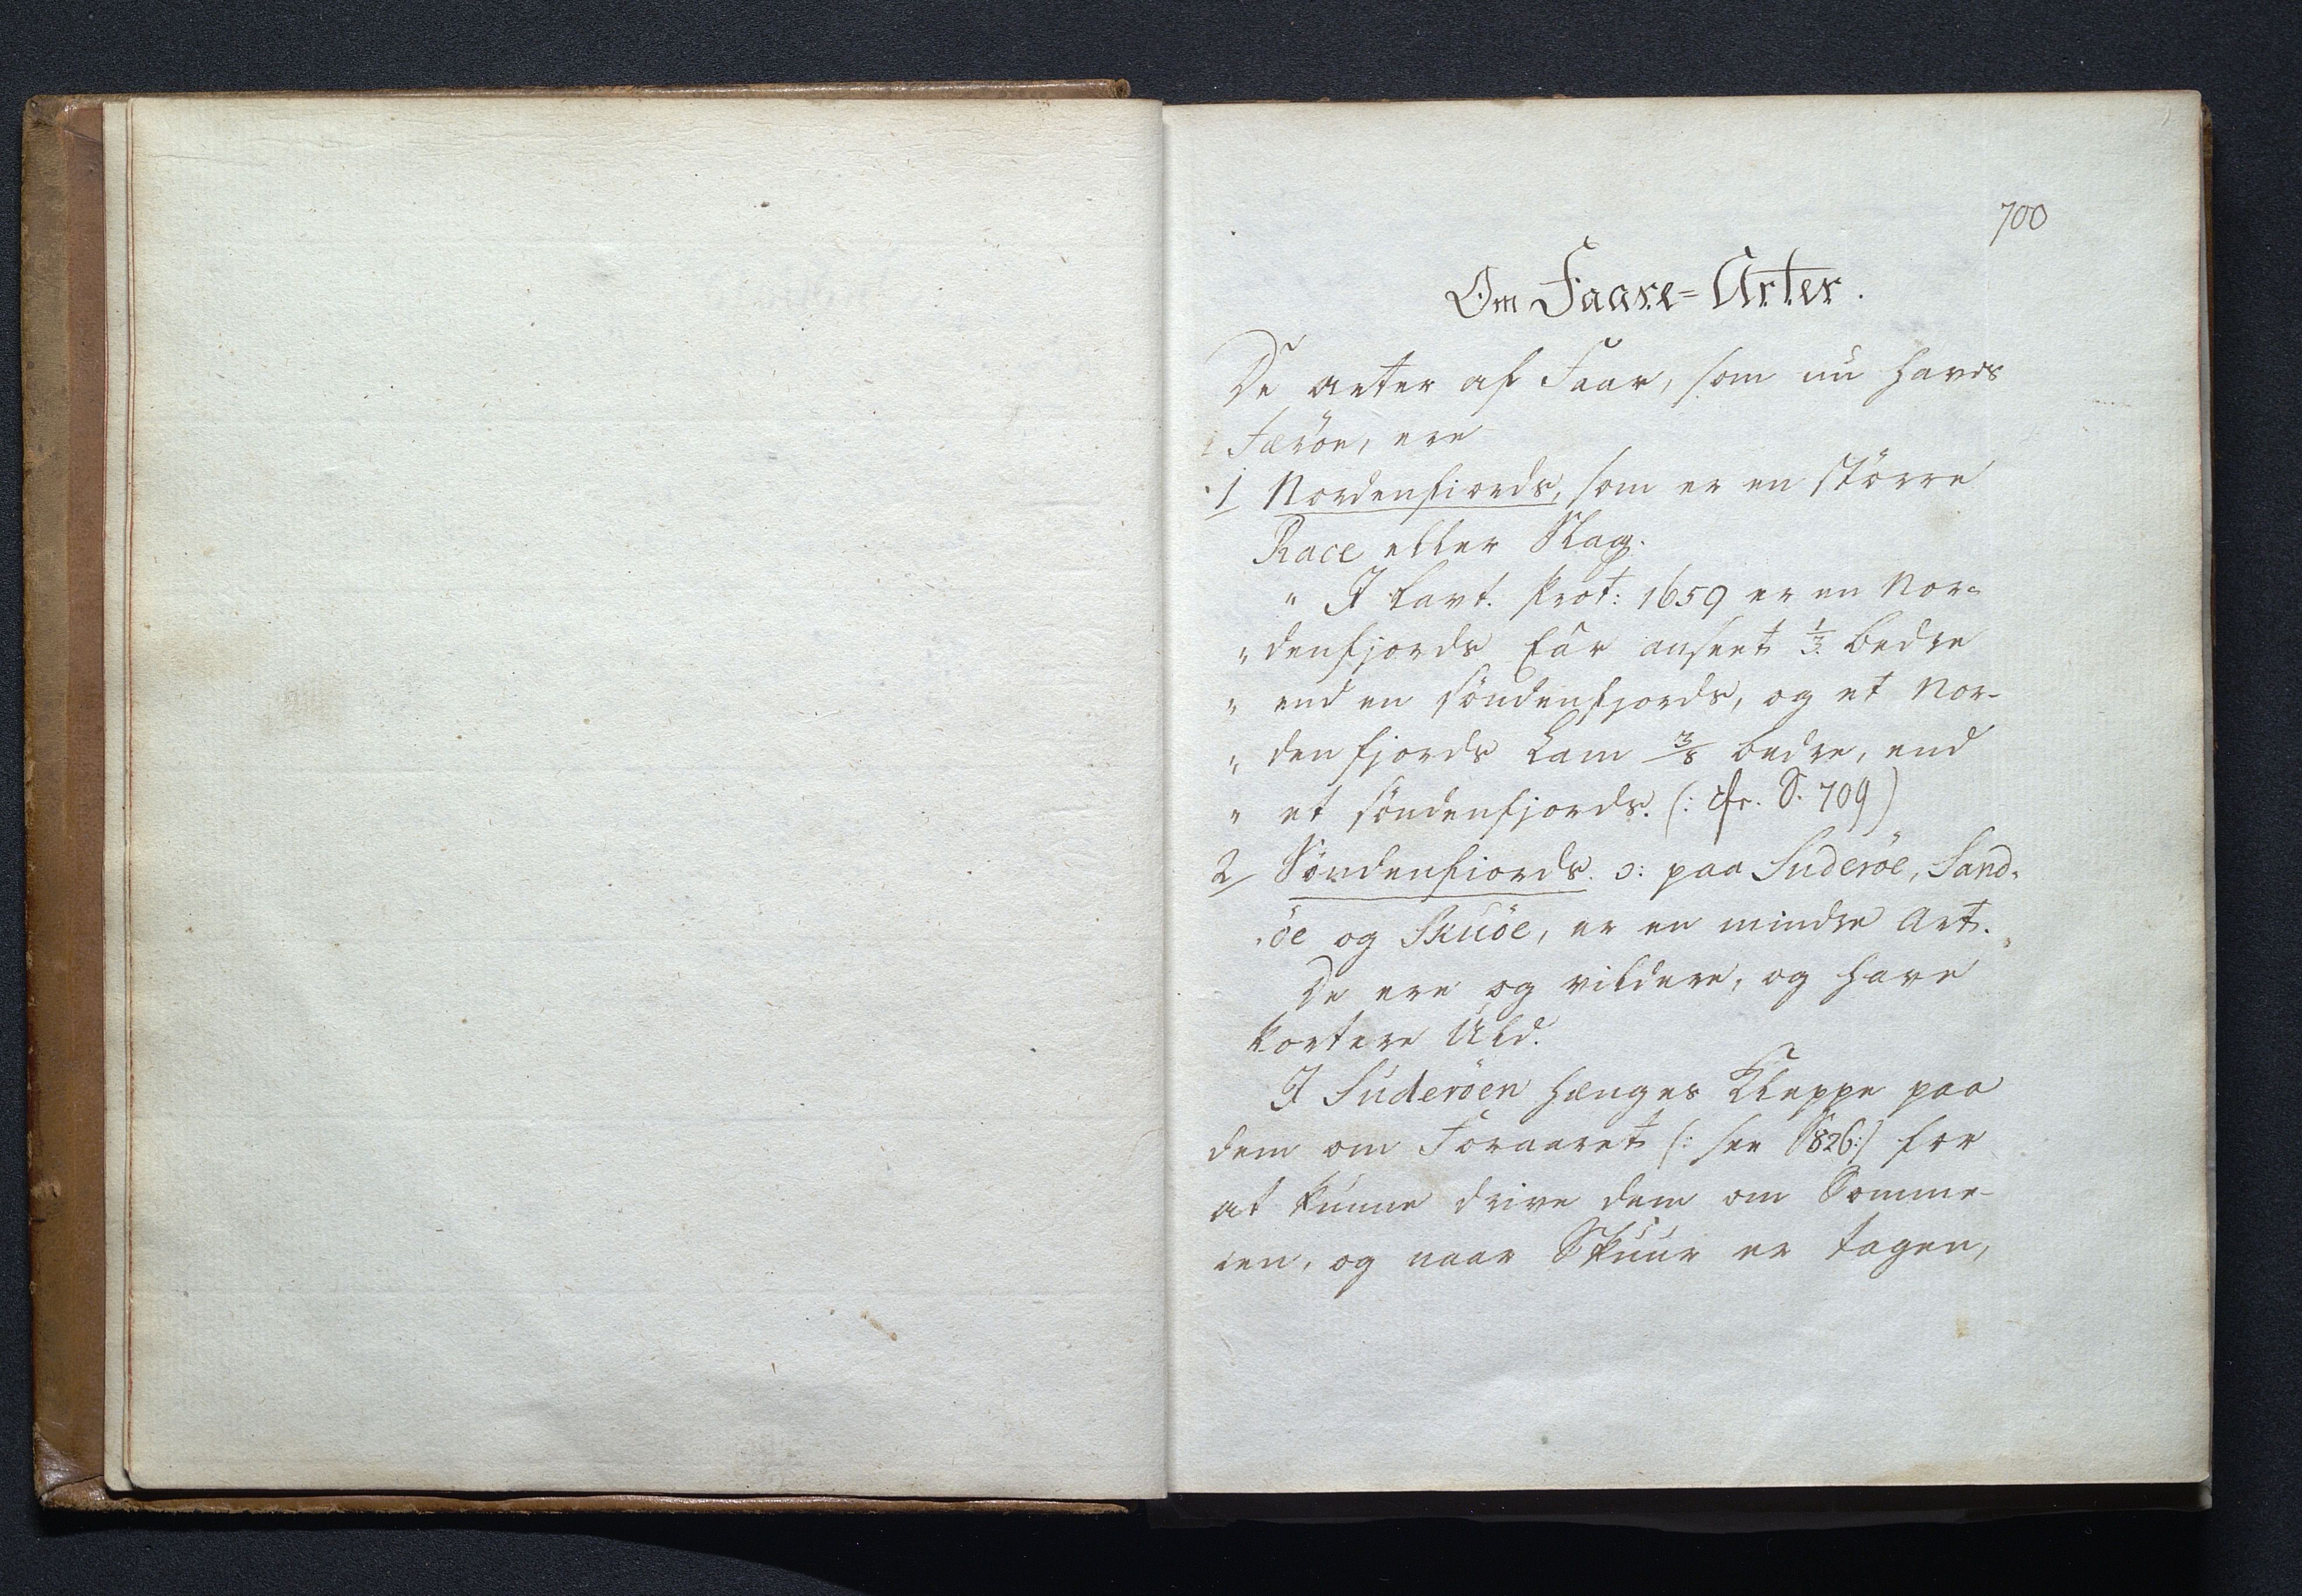 700
Om Faare=Arter.
De arter af Faar, som nu haves
i Færöe, ere
1 Nordenfiords, som er en större
Race eller Slag.
" I Lavt. Prot: 1659 er en Nor=
" denfjords Får anseet 1/3 bedre
" end en söndenfjords, og et Nor-
" denfjords Lam 3/8 bedre, end
" et söndenfjords. (: cfr. S. 709)
2 Söndenfiords. ɔ: paa Suderöe, Sand-
-öe og Skuöe, er en mindre Art.
De ere og vildere, og have
kortere Uld.
I Suderöen hænges Kleppe paa
dem om Foraaret (: see S826:) for
at kunne drive dem om Somme-
ren, og naar Skuur er tagen,